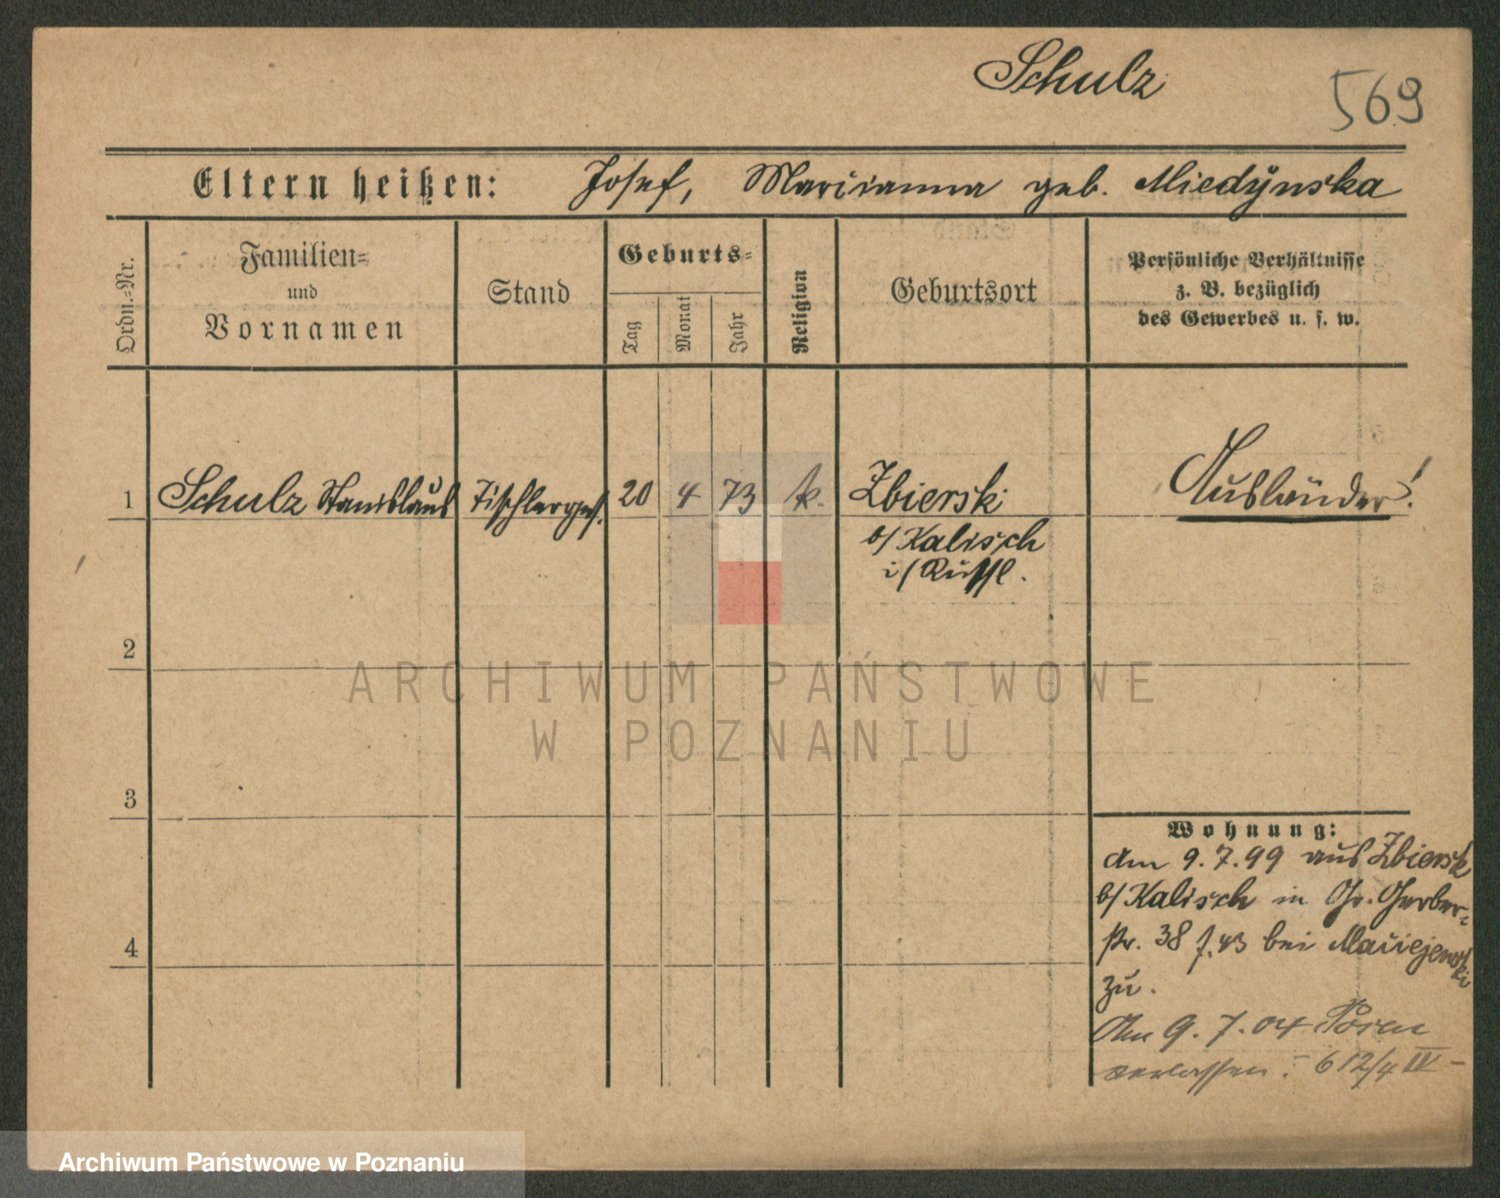 Schulz
569
Eltern heißen: Josef, Marcianna geb. Miedynska
Ordn.-Nr.
Familien-
und
Vornamen
Stand
Geburts-
Tag
Monat
Jahr
Religion
Geburtsort
Persönliche Verhältnisse
z. B. bezüglich
des Gewerbes u. s. w.
1 Schulz Stanislaus Tischlerges. 20 4 73 k. Zbiersk Ausländer!
b/ Kalisch
i/ Russl.
2
ARCHIWUM PAŃSTWOWE
W POZNANIU
3
Wohnung:
Am 9.7.99 aus Zbiersk
b/ Kalisch in Gr. Gerber-
str. 38 bei Maciejewski
zu.
4
Am 9.7.04 Posen
verlassen. 612/4 IV -
Archiwum Państwowe w Poznaniu